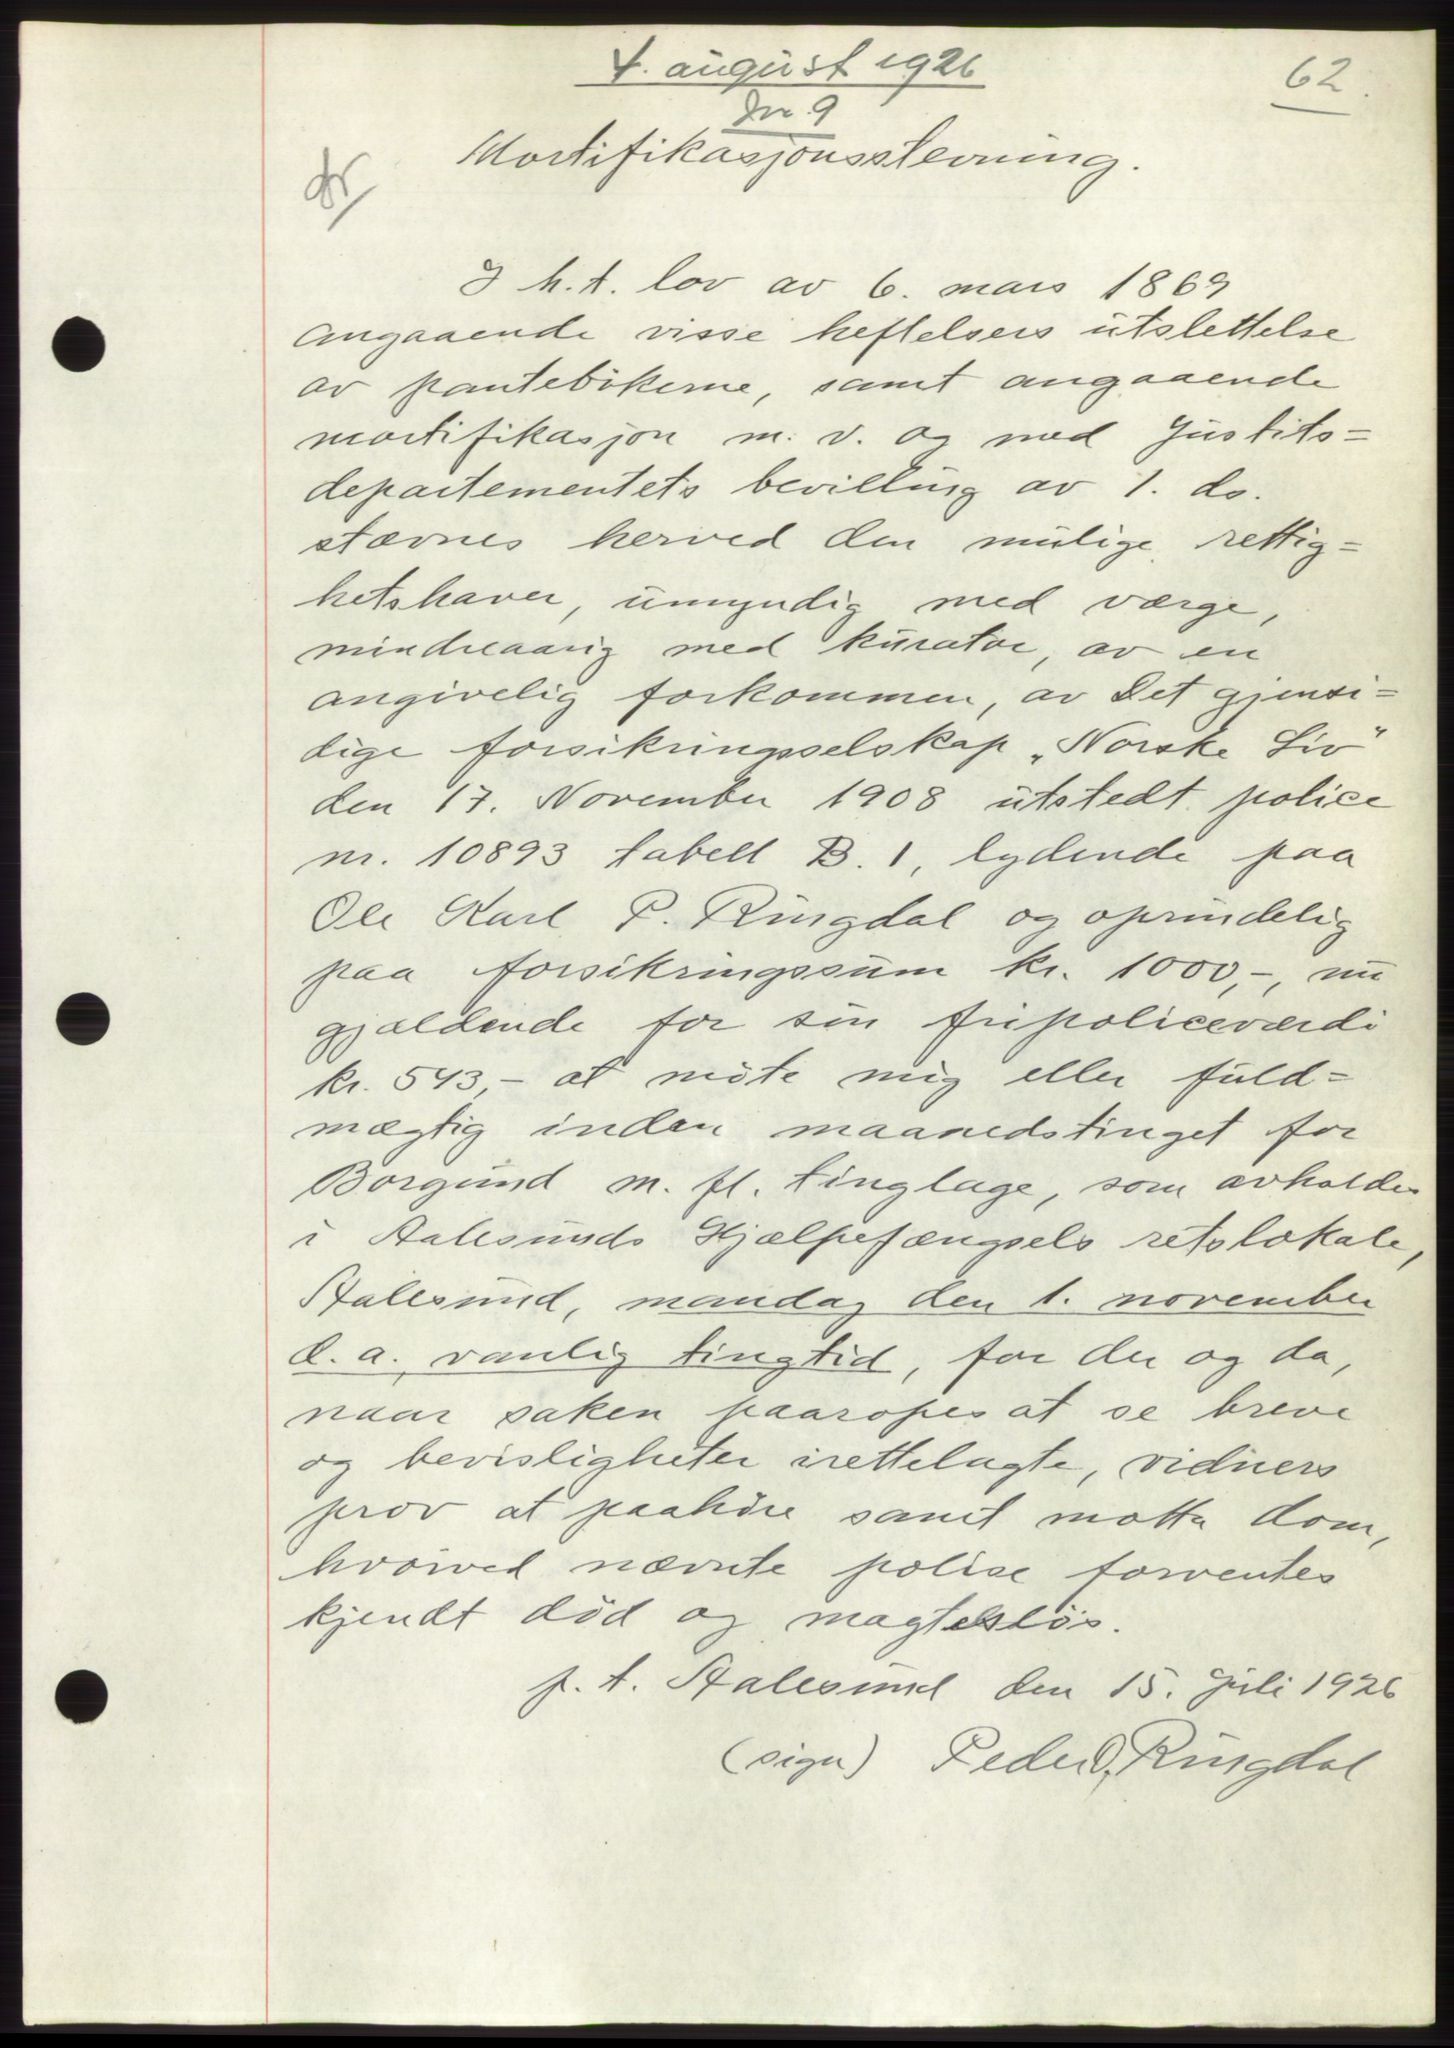 4. august 1926
62.
Jnr. 9
Mortifikasjonsstevning.
I h.t. lov av 6. mars 1869
angaaende visse heftelsers utslettelse
av pantebökerne, samt angaaende
mortifikasjon m. v. og med Justits=
departementets bevilling av 1. ds.
stævnes herved den mulige rettig=
hetshaver, umyndig med værge,
mindreaarig med kurator, av en
angivelig forkommen, av Det gjensi=
dige forsikringsselskap „Norske Liv"
den 17. November 1908 utstedt police
nr. 10893 tabell B. 1, lydende paa
Ole Karl P. Ringdal og oprindelig
paa forsikringssum kr. 1000,-, nu
gjældende for sin fripoliceværdi
kr. 543,- at möte mig eller fuld=
mægtig inden maanedstinget for
Borgund m. fl. tinglage, som avholdes
i Aalesunds Hjælpefængsels retslokale,
Aalesund, mandag den 1. november
d. a. vanlig tingtid, for der og da,
naar saken paaropes at se breve
og bevisligheter irettelagte, vidners
prov at paahöre samt motta dom,
hvorved nævnte polise forventes
kjendt död og magteslös.
p. t. Aalesund den 15. Juli 1926
(sign) Peder O. Ringdal